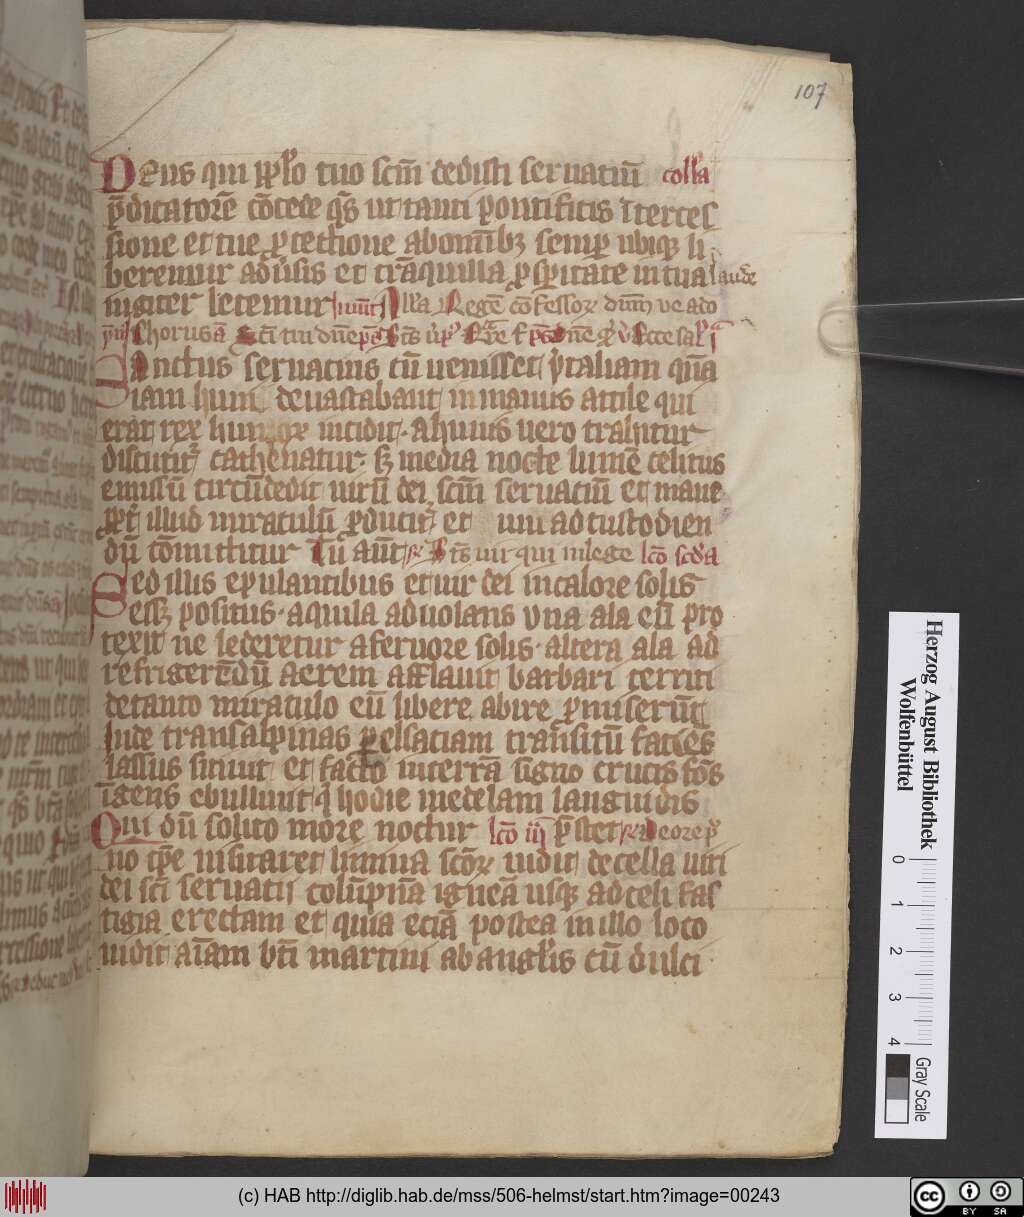 107
Deus qui pplo tuo scm dedisti seruatiū coll'a
p̄dicatorē cōcede qs ut tanti pontificis ītercес
sione et tue ꝓtectione ab omībꝫ semp ubiqꝫ li
beremur aduˀsis et trāquilla ꝓspitate in tua laude
iugiter letemur Inuit Alla Regē cōfessoꝝ dnm ve ado
sioneChorus ā
Sanctus seruatius cū uenisset ytaliam quā
iam huni deuastabant in manus attile qui
erat rex hunoꝝ incidit. ahuius uero trahitur
discutit catħenatur. sꝫ media nocte lumē celitus
emissū circūdedit uirū dei scm seruatiū et mane
ꝓpt illud miraculū ꝓducit et uiu ad custodien
dū cōmittitur Tu aut ℟ Iste uir qui in lege lcō scd'a
Sed illis epulantibus et uir dei in calore solis
essꝫ positus. aquila aduolans una ala eū pro
texit ne lederetur a feruore solis. altera ala ad
refrigerēdū aerem afflauit barbari territi
de tanto miraculo eū libere abire ꝑmiserūt
Inde transalpinas ꝑ elsaciam transitū faciēs
lassus sitiuit et facto in terrā signo crucis fōs
īgens ebulliuit q̄ hodie medelam languidis
Qui dū solito more noctur lcō iij p̄stet ℟ Deore p
no tpe uisitaret limina scōꝝ uidit de cella uiri
dei scī seruatij colūpnā igneā usqꝫ ad celi fas
tigia erectam et quia eciā postea in illo loco
uidit aīam btī martini ab anglis cū dulci
Herzog August Bibliothek
Wolfenbüttel
0 1 2 3 4
Gray Scale
(c) HAB http://diglib.hab.de/mss/506-helmst/start.htm?image=00243
cc BY SA